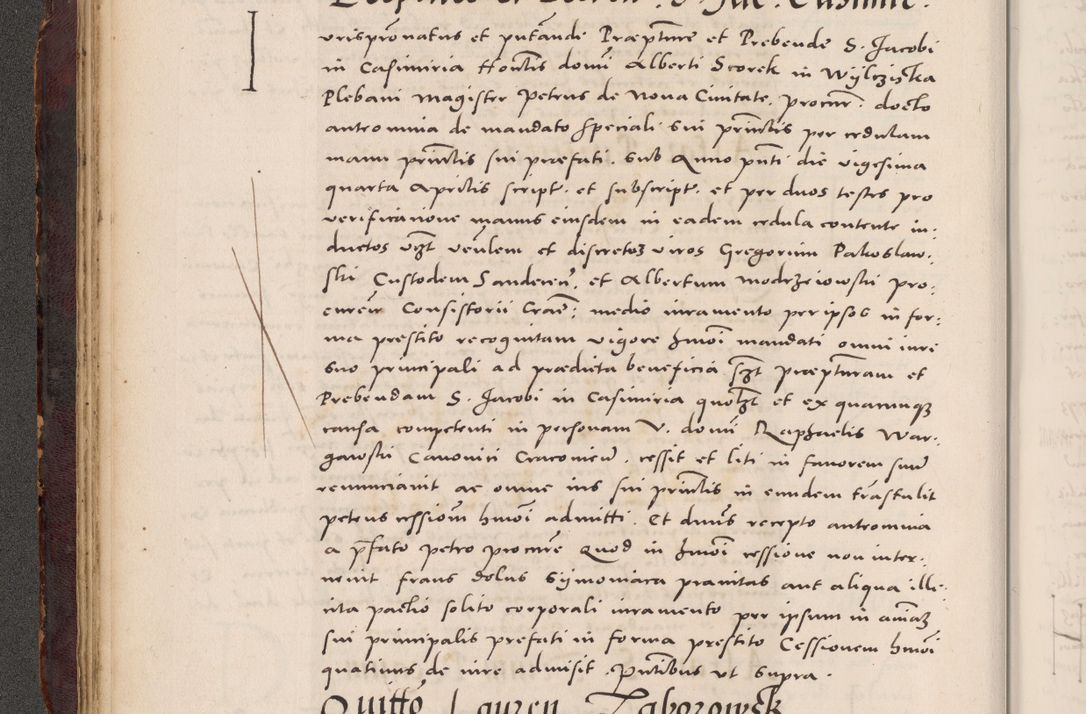 urispronatus et putandi Præpture et Prebende S. Jacobi
in Casimiria Hontis domi Alberti Scorek in Wylczißka
Plebani Magister Petrus de Nova Civitate, procur: docto
antronina de mandato speciali sui prinlis per cedulam
manu prinlis sui præfati, sub Anno pnti die vigesima
quarta Aprilis script: et subscript: et per duos testes pro
verificatione manus eiusdem in eadem cedula contente in:
ductos vzt venlem et discretos viros Gregorium Patroslaw:
ski Custodem Sandecen, et Albertum Modrzeiowski pro:
curem Consistorii Cran: medio iuramento per ipsos in for:
ma prestito recognitam vigore hmoi mandati omni iure
suo principali ad prædicta beneficia szt præpturam et
Prebendam S. Jacobi in Casimiria quolzt et ex quacunque
causa competenti in personam V. domi Raphaelis War:
gawski Canonici Cracovien, cessit et liti in favorem suum
renunciavit ac omne ius sui prinlis in eundem trastulit
petens cessionem hmoi admitti. Et dnus recepto antronina
a pfato Petro procure Quod in hmoi cessione non inter:
venit fraus dolus Symoniaca pravitas aut aliqua illi:
cita pactio solito corporali iuramento per ipsum in aniaz
sui principalis prefati in forma prestito Cessionem hmoi
quatinus de iure admisit. Pntibus ut supra.
Quitto Lauren Zaborowsk